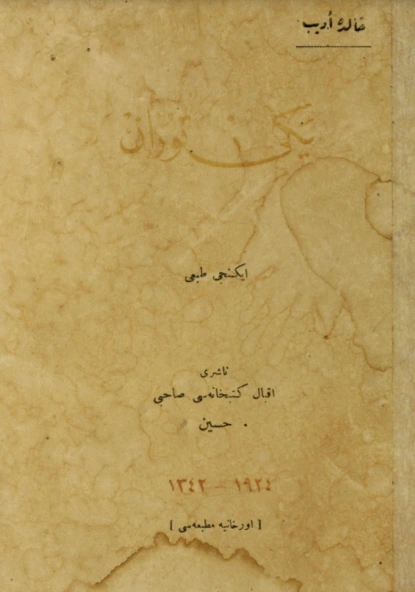 خالده أديب
يكى توران
ايكنجى طبعى
ناشرى
اقبال كتبخانه‌سى صاحبى
حسين
١٩٢٤ — ١٣٤٢
[ اورخانيه مطبعه‌سى ]